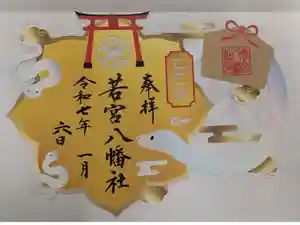 奉拝
若宮八幡社
令和七年
一月
六日